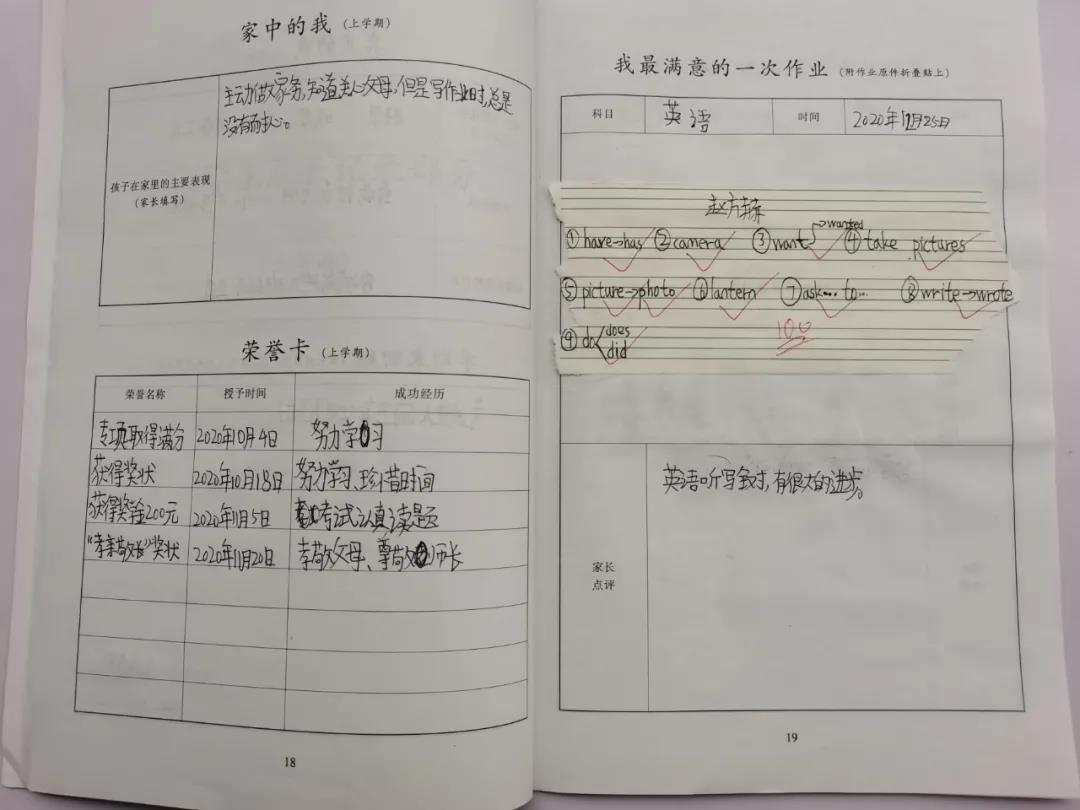 家中的我（上学期）
孩子在家里的主要表现
（家长填写）
主动做家务,知道关心父母,但是写作业时,总是
没有耐心。
荣誉卡（上学期）
荣誉名称 授予时间 成功经历
专项取得满分 2020年10月4日 努力学习
获得奖状 2020年10月18日 努力学习、珍惜时间
获得奖金200元 2020年11月5日 考试认真读题
“孝亲敬长”奖状 2020年11月20日 孝敬父母、尊敬师长
18
我最满意的一次作业（附作业原件折叠贴上）
科目 英语 时间 2020年12月25日
赵方
①have→has ②camera ③want→wanted ④take pictures
⑤picture→photo ⑥lantern ⑦ask...to... ⑧write→wrote
⑨do does
did
100
家长
点评
英语听写全对,有很大的进步。
19